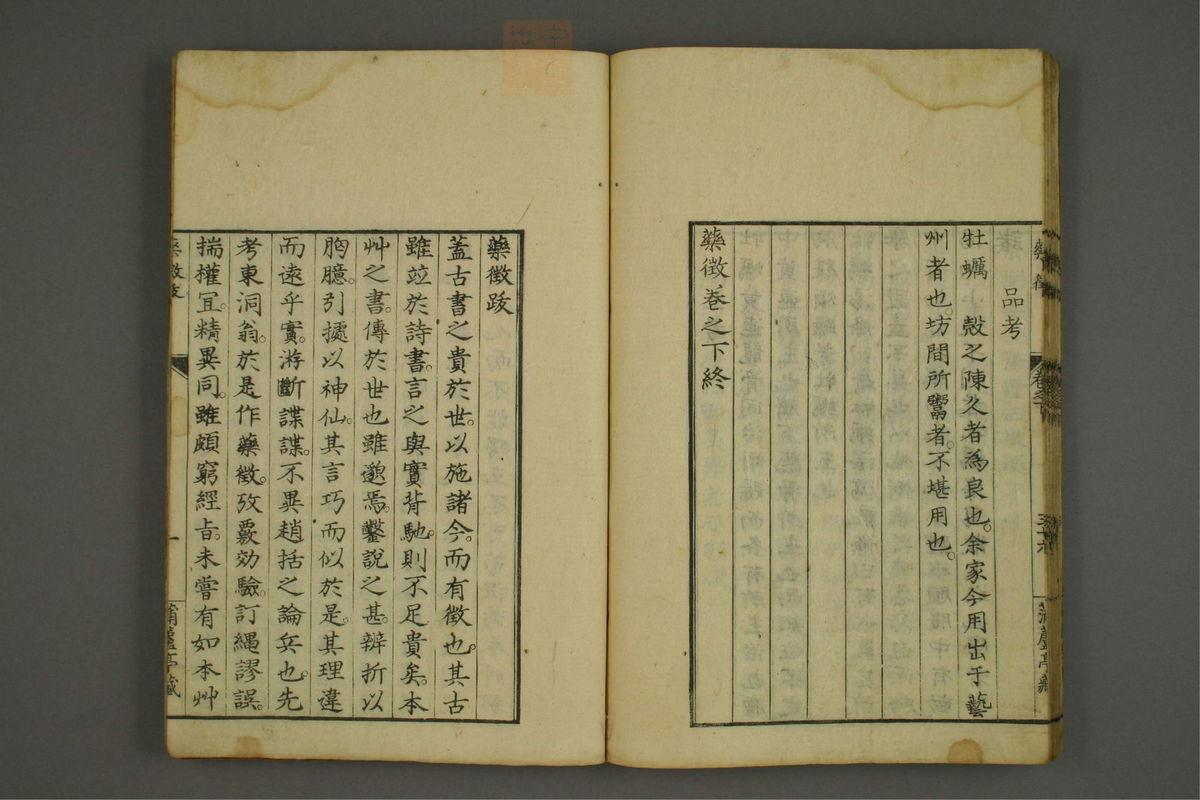 品考
牡蠣 殼之陳久者為良也。余家今用出于藝
州者也。坊間所鬻者。不堪用也。
藥徵卷之下終
藥徵跋
蓋古書之貴於世。以施諸今。而有徵也。其古
雖竝於詩書。言之與實背馳。則不足貴矣。本
艸之書。傳於世也雖邈焉。鑿說之甚。辨折以
胸臆。引據以神仙。其言巧而似於是。其理違
而遠乎實。游斷諜諜。不異趙括之論兵也。先
考東洞翁。於是作藥徵。攷覈効驗。訂繩謬誤。
揣權宜。精異同。雖頗窮經旨。未嘗有如本艸